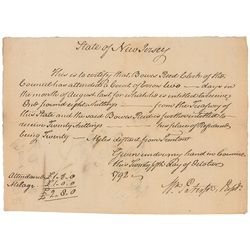 State of New Jersey
This is to certify that Bowes Reed Clerk of the
Council has attended a Court of Errors two — days in
the month of August last for which he is entitled to receive
One pound eight Shillings — from the Treasury of
this State and the said Bowes Reed is further entitled to
receive Twenty Shillings — his place of
being Twenty — Myles distant from Trenton
Given under my hand in Council
this Twenty fifth day of October
1792
Attendance £1.8.0
Mileage £1.0.0
£2.8.0